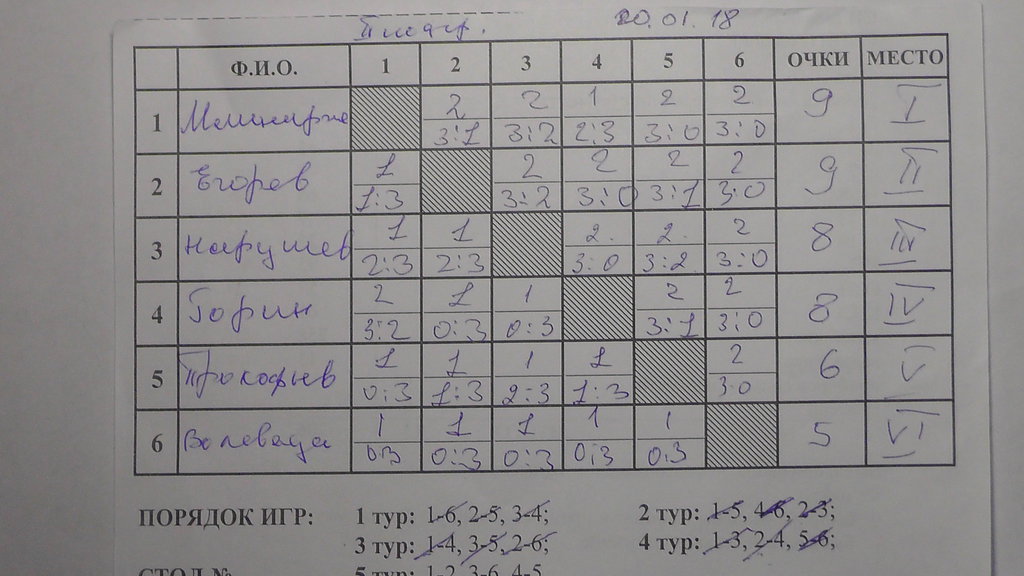 20.01.18
Ф.И.О. 1 2 3 4 5 6 ОЧКИ МЕСТО
2 2 1 2 2
1 9 I
3:1 3:2 2:3 3:0 3:0
1 2 2 2 2
2 Егоров 9 II
1:3 3:2 3:0 3:1 3:0
1 1 2 2 2
3 Нарушев 8 III
2:3 2:3 3:0 3:2 3:0
2 1 1 2 2
4 Горин 8 IV
3:2 0:3 0:3 3:1 3:0
1 1 1 1 2
5 Прокофьев 6 V
0:3 1:3 2:3 1:3 3:0
1 1 1 1 1
6 5 VI
0:3 0:3 0:3 0:3 0:3
ПОРЯДОК ИГР: 1 тур: 1-6, 2-5, 3-4; 2 тур: 1-5, 4-6, 2-3;
3 тур: 1-4, 3-5, 2-6; 4 тур: 1-3, 2-4, 5-6;
СТОЛ № 5 тур: 1-2, 3-6, 4-5